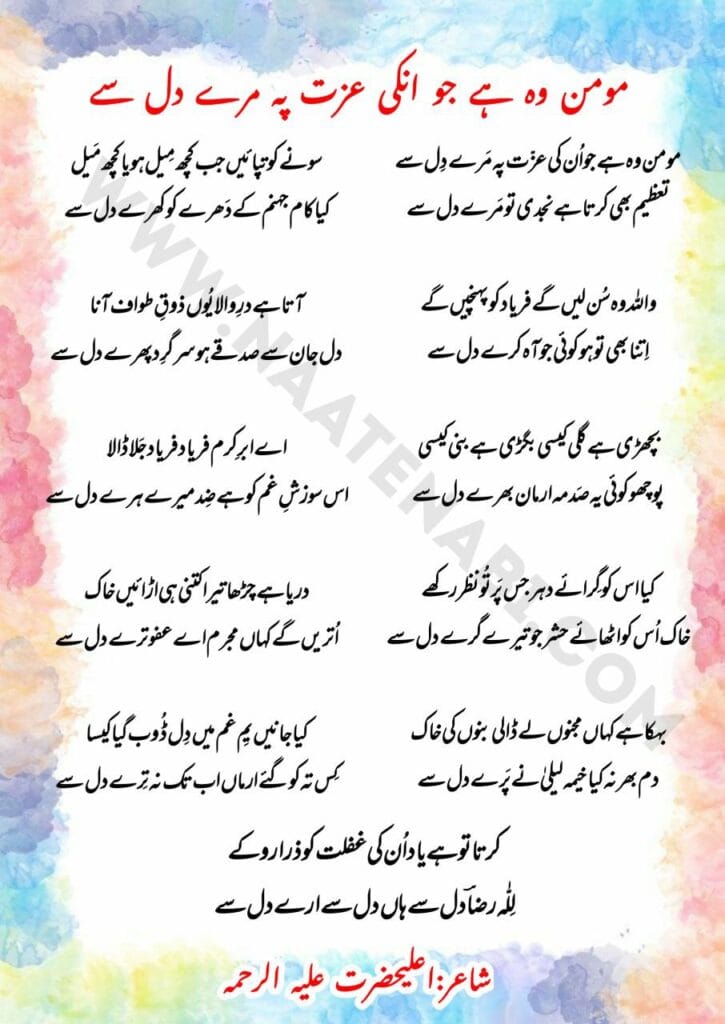 مومن وہ ہے جو انکی عزت پہ مرے دل سے
مومن وہ ہے جو اُن کی عزّت پہ مَرے دِل سے
تعظیم بھی کرتا ہے نجدی تو مَرے دل سے
سونے کو تپائیں جب کچھ مِیل ہو یا کچھ مَیل
کیا کام جہنم کے دَھرے کو کھرے دل سے
واللہ وہ سُن لیں گے فریاد کو پہنچیں گے
اِتنا بھی تو ہو کوئی جو آہ کرے دل سے
آتا ہے درِ والا یُوں ذوقِ طواف آنا
دل جان سے صدقے ہو سر گِرد پھرے دل سے
بچھڑی ہے گلی کیسی بگڑی ہے بنی کیسی
پوچھو کوئی یہ صَدمہ ارمان بھرے دل سے
اے ابرِ کرم فریاد فریاد جَلا ڈالا
اس سوزشِ غم کو ہے ضِد میرے ہرے دل سے
کیا اس کو گِرائے دہر جس پَر تُو نظر رکھے
خاک اُس کو اٹھائے حشر جو تیرے گرے دل سے
دریا ہے چڑھا تیرا کتنی ہی اڑائیں خاک
اُتریں گے کہاں مجرم اے عفو ترے دل سے
بہکا ہے کہاں مجنوں لے ڈالی بنوں کی خاک
دم بھر نہ کیا خیمہ لیلیٰ نے پَرے دل سے
کیا جانیں یمِ غم میں دِل ڈُوب گیا کیسا
کِس تہ کو گئے ارماں اب تک نہ تِرے دل سے
کرتا تو ہے یاد اُن کی غفلت کو ذرا روکے
لِلّٰہ رضاؔ دل سے ہاں دل سے ارے دل سے
شاعر:اعلیحضرت علیہ الرحمہ
WWW.NAATENABI.COM